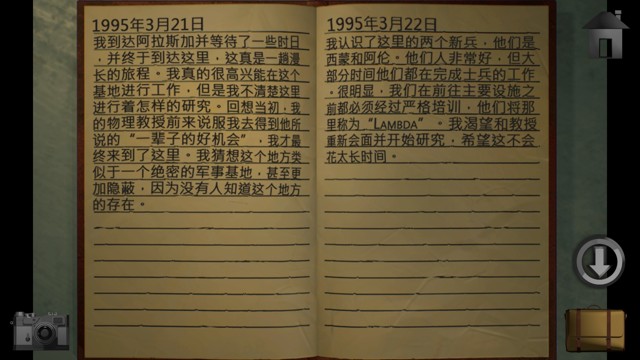 1995年3月21日
我到达阿拉斯加并等待了一些时日
，并终于到达这里，这真是一趟漫
长的旅程。我真的很高兴能在这个
基地进行工作，但是我不清楚这里
进行着怎样的研究。回想当初，我
的物理教授前来说服我去得到他所
说的“一辈子的好机会”，我才最
终来到了这里。我猜想这个地方类
似于一个绝密的军事基地，甚至更
加隐蔽，因为没有人知道这个地方
的存在。
1995年3月22日
我认识了这里的两个新兵，他们是
西蒙和阿伦。他们人非常好，但大
部分时间他们都在完成士兵的工作
，很明显，我们在前往主要设施之
前都必须经过严格培训，他们将那
里称为“LAMBDA”。我渴望和教授
重新会面并开始研究，希望这不会
花太长时间。